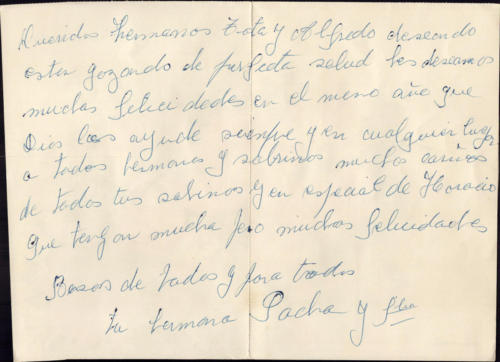 Queridos hermanos Tota y Alfredo deseando
esten gozando de perfecta salud les deseamos
muchas felicidades en el nuevo año que
Dios los ayude siempre y en cualquier lugar
a todos hermanos y sobrinos muchos cariños
de todos tus sobinos y en especial de Horacio
que tengan mucha pero muchas felicidades
Besos de todos y para todos
tu hermana Pocha y flia